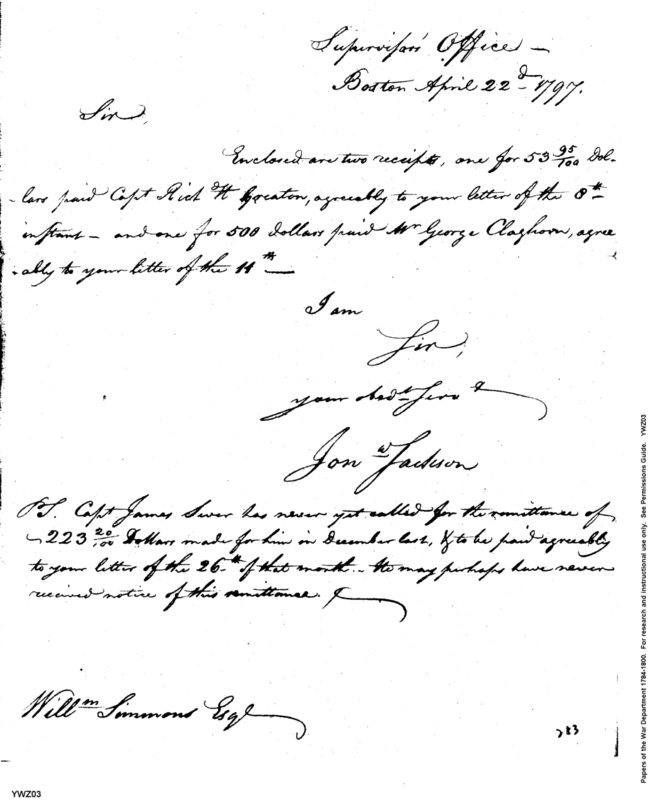 Supervisor's Office —
Boston April 22d 1797.
Sir,
Enclosed are two receipts, one for 53 95/100 Dol-
-lars paid Capt Richd H Greaton, agreeably to your letter of the 8th
instant — and one for 500 dollars paid Mr George Claghorn, agree
-ably to your letter of the 11th —
I am
Sir,
your obedt Servt
Jonn Jackson
PS. Capt James Sever has never yet called for the remittance of
223 20/100 Dollars made for him in December last, & to be paid agreeably
to your letter of the 26th of that month. — He may perhaps have never
received notice of this remittance.
Willm Simmons Esqr
783
YWZ03
Papers of the War Department 1784-1800. For research and instructional use only. See Permissions Guide. YWZ03